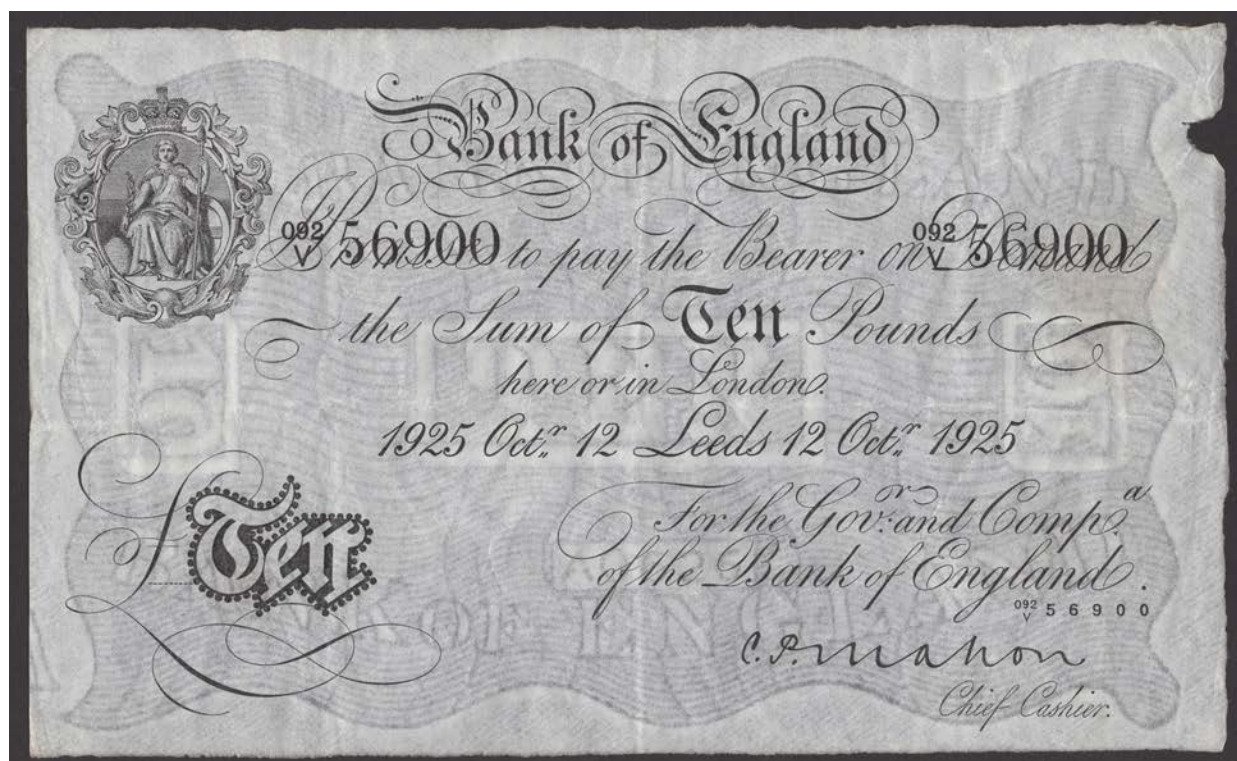 Bank of England
092 V 56900 Promise to pay the Bearer on 092 V 56900 Demand
the Sum of Ten Pounds
here or in London.
1925 Oct.r 12 Leeds 12 Oct.r 1925
£Ten
For the Gov.r and Comp.a
of the Bank of England.
092 V 56900
C.P. Mahon
Chief Cashier.